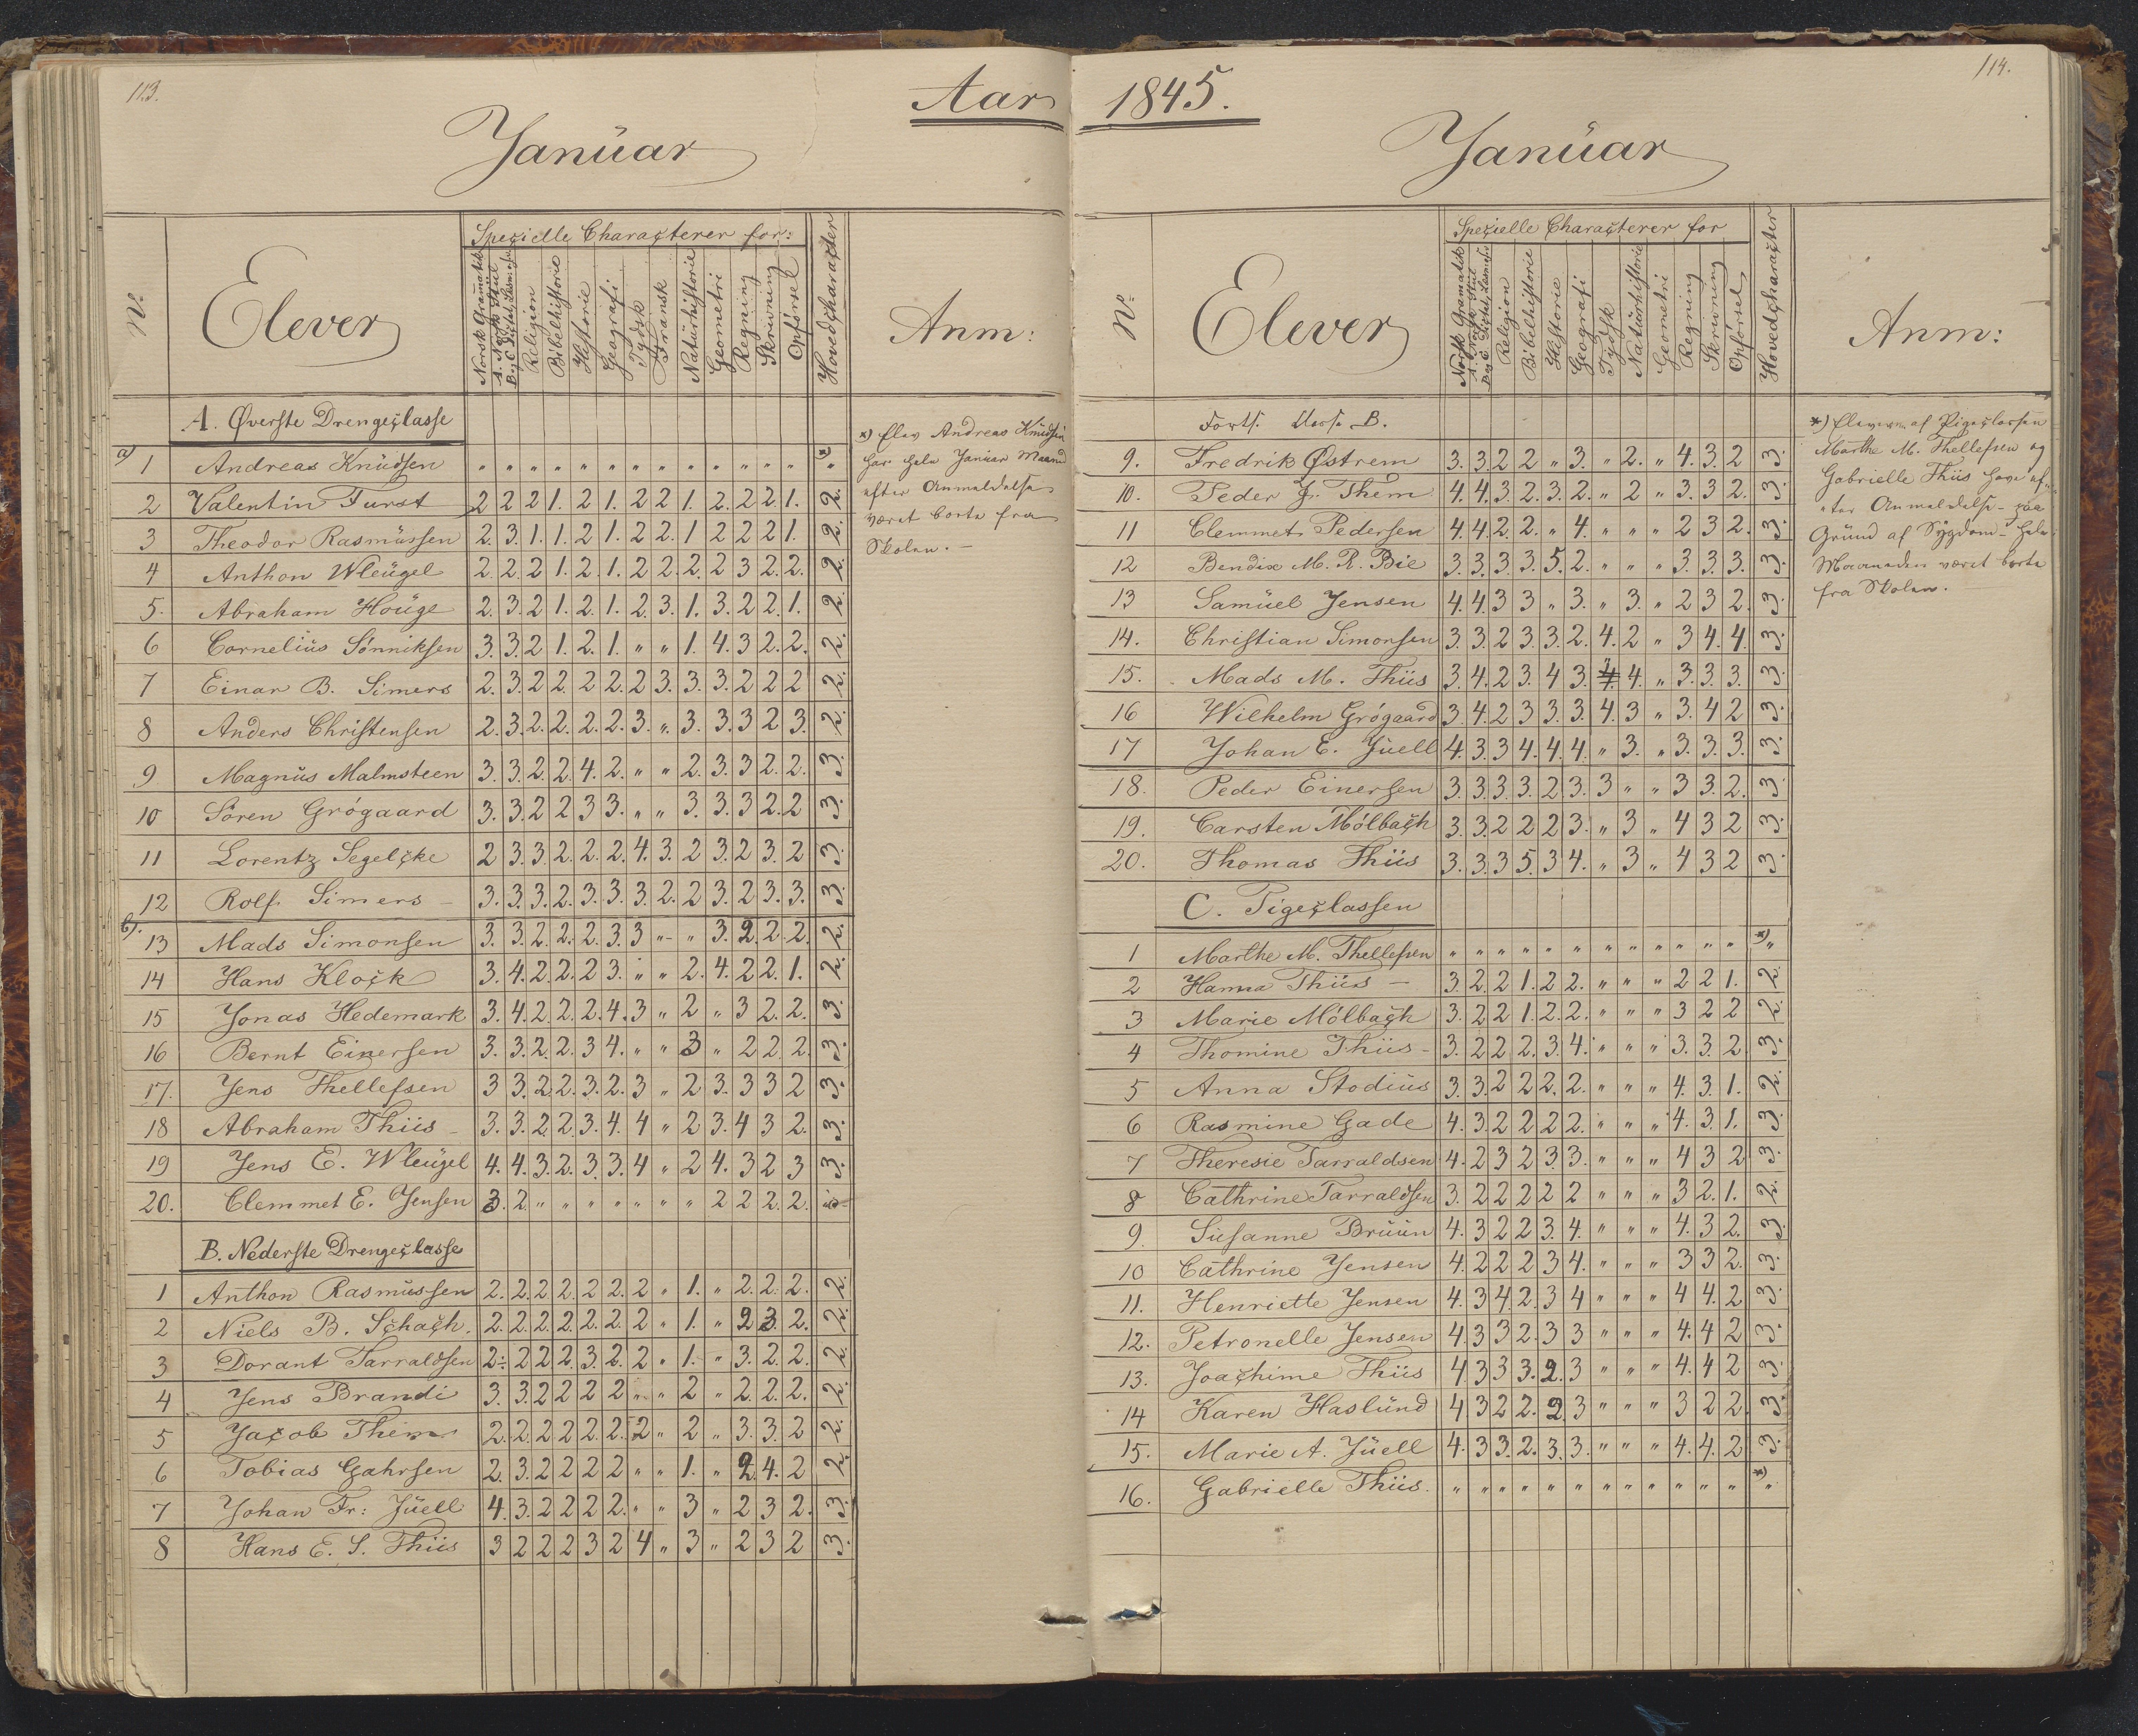 113.
Aar
Januar
No.
Elever
Specielle Characterer for:
Norsk Gramatik
A. Norsk Stiil
B og C Dictat, Læsn.
Religion
Bibelhistorie
Historie
Geografi
Tydsk
Fransk
Naturhistorie
Geometri
Regning
Skrivning
Opførsel
Hovedcharacter
Anm:
A. Øverste Drengeclasse
a) 1 Andreas Knudsen " " " " " " " " " " " " " *) "
2 Valentin Furst 2 2 2 1. 2 1. 2 2 1. 2. 2 2 1. 2.
3 Theodor Rasmussen 2. 3. 1. 1. 2 1. 2 2. 1 2 2 2 1. 2.
4 Anthon Wleugel 2. 2. 2 1. 2. 1. 2 2. 2. 2 3 2. 2. 2.
5. Abraham Houge 2. 3. 2 1. 2. 1. 2 3. 1. 3. 2 2 1. 2.
6 Cornelius Sønniksen 3. 3. 2 1. 2. 1. " " 1. 4. 3 2. 2. 2.
7 Einar B. Simers 2. 3. 2 2. 2 2. 2 3. 3. 3. 2 2 2 2.
8 Anders Christensen 2. 3. 2. 2. 2. 2. 3. " 3. 3. 3 2 3. 2.
9 Magnus Malmsteen 3. 3. 2. 2. 4. 2. " " 2. 3. 3 2. 2. 3.
10 Søren Grøgaard 3. 3. 2 2 3 3. " " 3. 3. 3 2. 2 3.
11 Lorentz Segelcke 2 3. 3. 2. 2. 2. 4. 3. 2 3. 2 3. 2 3.
12 Rolf. Simers 3. 3. 3. 2. 3. 3. 3. 2. 2 3. 2 3. 3. 3.
b) 13 Mads Simonsen 3. 3. 2. 2. 2. 3. 3 " " 3. 2. 2. 2. 2.
14 Hans Klock 3. 4. 2. 2. 2 3. " " 2. 4. 2 2. 1. 2.
15 Jonas Hedemark 3. 4. 2. 2. 2. 4. 3 " 2 " 3 2. 2. 3.
16 Bernt Einersen 3. 3. 2. 2. 3 4. " " 3 " 2 2. 2. 3.
17. Jens Thellefsen 3 3. 2. 2. 3. 2. 3 " 2 3. 3 3 2 3.
18 Abraham Thiis 3. 3. 2. 2. 3. 4. 4 " 2 3. 4 3 2. 3.
19 Jens E. Wleugel 4. 4. 3. 2. 3. 3. 4 " 2 4. 3 2 3 3.
20. Clemmet E. Jensen 3. 2. " " " " " " " 2 2 2. 2.
B. Nederste Drengeclasse
1 Anthon Rasmussen 2. 2. 2. 2. 2. 2. 2 " 1. " 2. 2. 2. 2.
2 Niels B. Schach. 2. 2. 2. 2. 2. 2. 2 " 1. " 2 3. 2. 2.
3 Dorant Tarraldsen 2. 2 2 2. 3. 2. 2 " 1. " 3. 2. 2. 2.
4 Jens Brandi 3. 3. 2 2 2 2 " " 2 " 2. 2. 2. 2.
5 Jacob Them 2. 2. 2 2 2. 2. 2 " 2 " 3. 3. 2 2.
6 Tobias Gahrsen 2. 3. 2 2 2 2 " " 1. " 2. 4. 2 2.
7 Johan Fr: Juell 4. 3. 2 2 2 2. " " 3 " 2 3 2. 3.
8 Hans E. S. Thiis 3 2 2 2 3 2 4 " 3 " 2 3 2 3.
*) Elev Andreas Knudsen
har hele Januar Maaned
efter Anmeldelse
været borte fra
Skolen. —
114.
1845.
Januar
No.
Elever
Specielle Characterer for
Norsk Gramatik
A. Norsk Stiil
B og C Dictat, Læsn.
Religion
Bibelhistorie
Historie
Geografi
Tydsk
Naturhistorie
Geometri
Regning
Skrivning
Opførsel
Hovedcharacter
Anm:
Forts. Classe B.
9. Fredrik Østrem 3. 3. 2 2 " 3. " 2. " 4. 3. 2 3.
10. Peder J. Them 4. 4. 3. 2. 3. 2. " 2 " 3. 3 2. 3.
11 Clemmet Pedersen 4. 4. 2. 2. " 4. " " " 2 3 2. 3.
12 Bendix M. R. Bie 3. 3. 3. 3. 5. 2. " " " 3. 3. 3. 3.
13 Samuel Jensen 4. 4. 3 3 " 3. " 3. " 2 3 2. 3.
14. Christian Simonsen 3. 3. 2 3. 3. 2. 4. 2 " 3 4. 4. 3.
15. Mads M. Thiis 3. 4. 2 3. 4 3. 4. 4. " 3. 3. 3. 3.
16 Wilhelm Grøgaard 3. 4. 2 3 3. 3. 4. 3 " 3. 4 2 3.
17 Johan E. Juell 4. 3. 3 4. 4. 4. " 3. " 3. 3. 3. 3.
18. Peder Einersen 3. 3. 3. 3. 2. 3. 3 " " 3 3. 2. 3.
19. Carsten Mølbach 3. 3. 2 2 2 3. " 3 " 4 3 2 3.
20. Thomas Thiis 3. 3. 3 5. 3 4. " 3 " 4 3 2 3.
C. Pigeclassen
1 Marthe M. Thellefsen " " " " " " " " " " " " *) "
2 Hanna Thiis 3. 2. 2 1. 2 2. " " " 2 2 1. 2.
3 Marie Mølbach 3. 2 2 1. 2. 2. " " " 3 2 2 2.
4 Thomine Thiis 3. 2 2 2. 3. 4. " " " 3. 3. 2. 3.
5 Anna Stodius 3. 3. 2 2 2. 2. " " " 4. 3. 1. 2.
6 Rasmine Gade 4. 3. 2 2 2 2. " " " 4. 3. 1. 3.
7 Theresie Tarraldsen 4. 2 3 2 3. 3. " " " 4 3 2 3.
8 Cathrine Tarraldsen 3. 2 2 2 2 2 " " " 3 2. 1. 2.
9. Susanne Bruun 4. 3 2 2 3. 4. " " " 4. 3 2. 3.
10 Cathrine Jensen 4. 2 2 2 3 4. " " " 3 3 2. 3.
11. Henriette Jensen 4. 3 4. 2. 3 4 " " " 4 4. 2 3.
12. Petronelle Jensen 4. 3 3 2. 3 3 " " " 4. 4 2 3.
13. Joachime Thiis 4 3 3 3. 2. 3 " " " 4. 4 2 3.
14 Karen Haslund 4 3 2 2. 2. 3 " " " 3 2 2. 3.
15. Marie A. Juell 4. 3 3. 2. 3. 3. " " " 4. 4. 2 3.
16. Gabrielle Thiis. " " " " " " " " " " " " *) "
*) Eleverne af Pigeclassen
Marthe M. Thellefsen og
Gabrielle Thiis have ef-
"ter Anmeldelse - paa
Grund af Sygdom - hele
Maaneden været borte
fra Skolen.